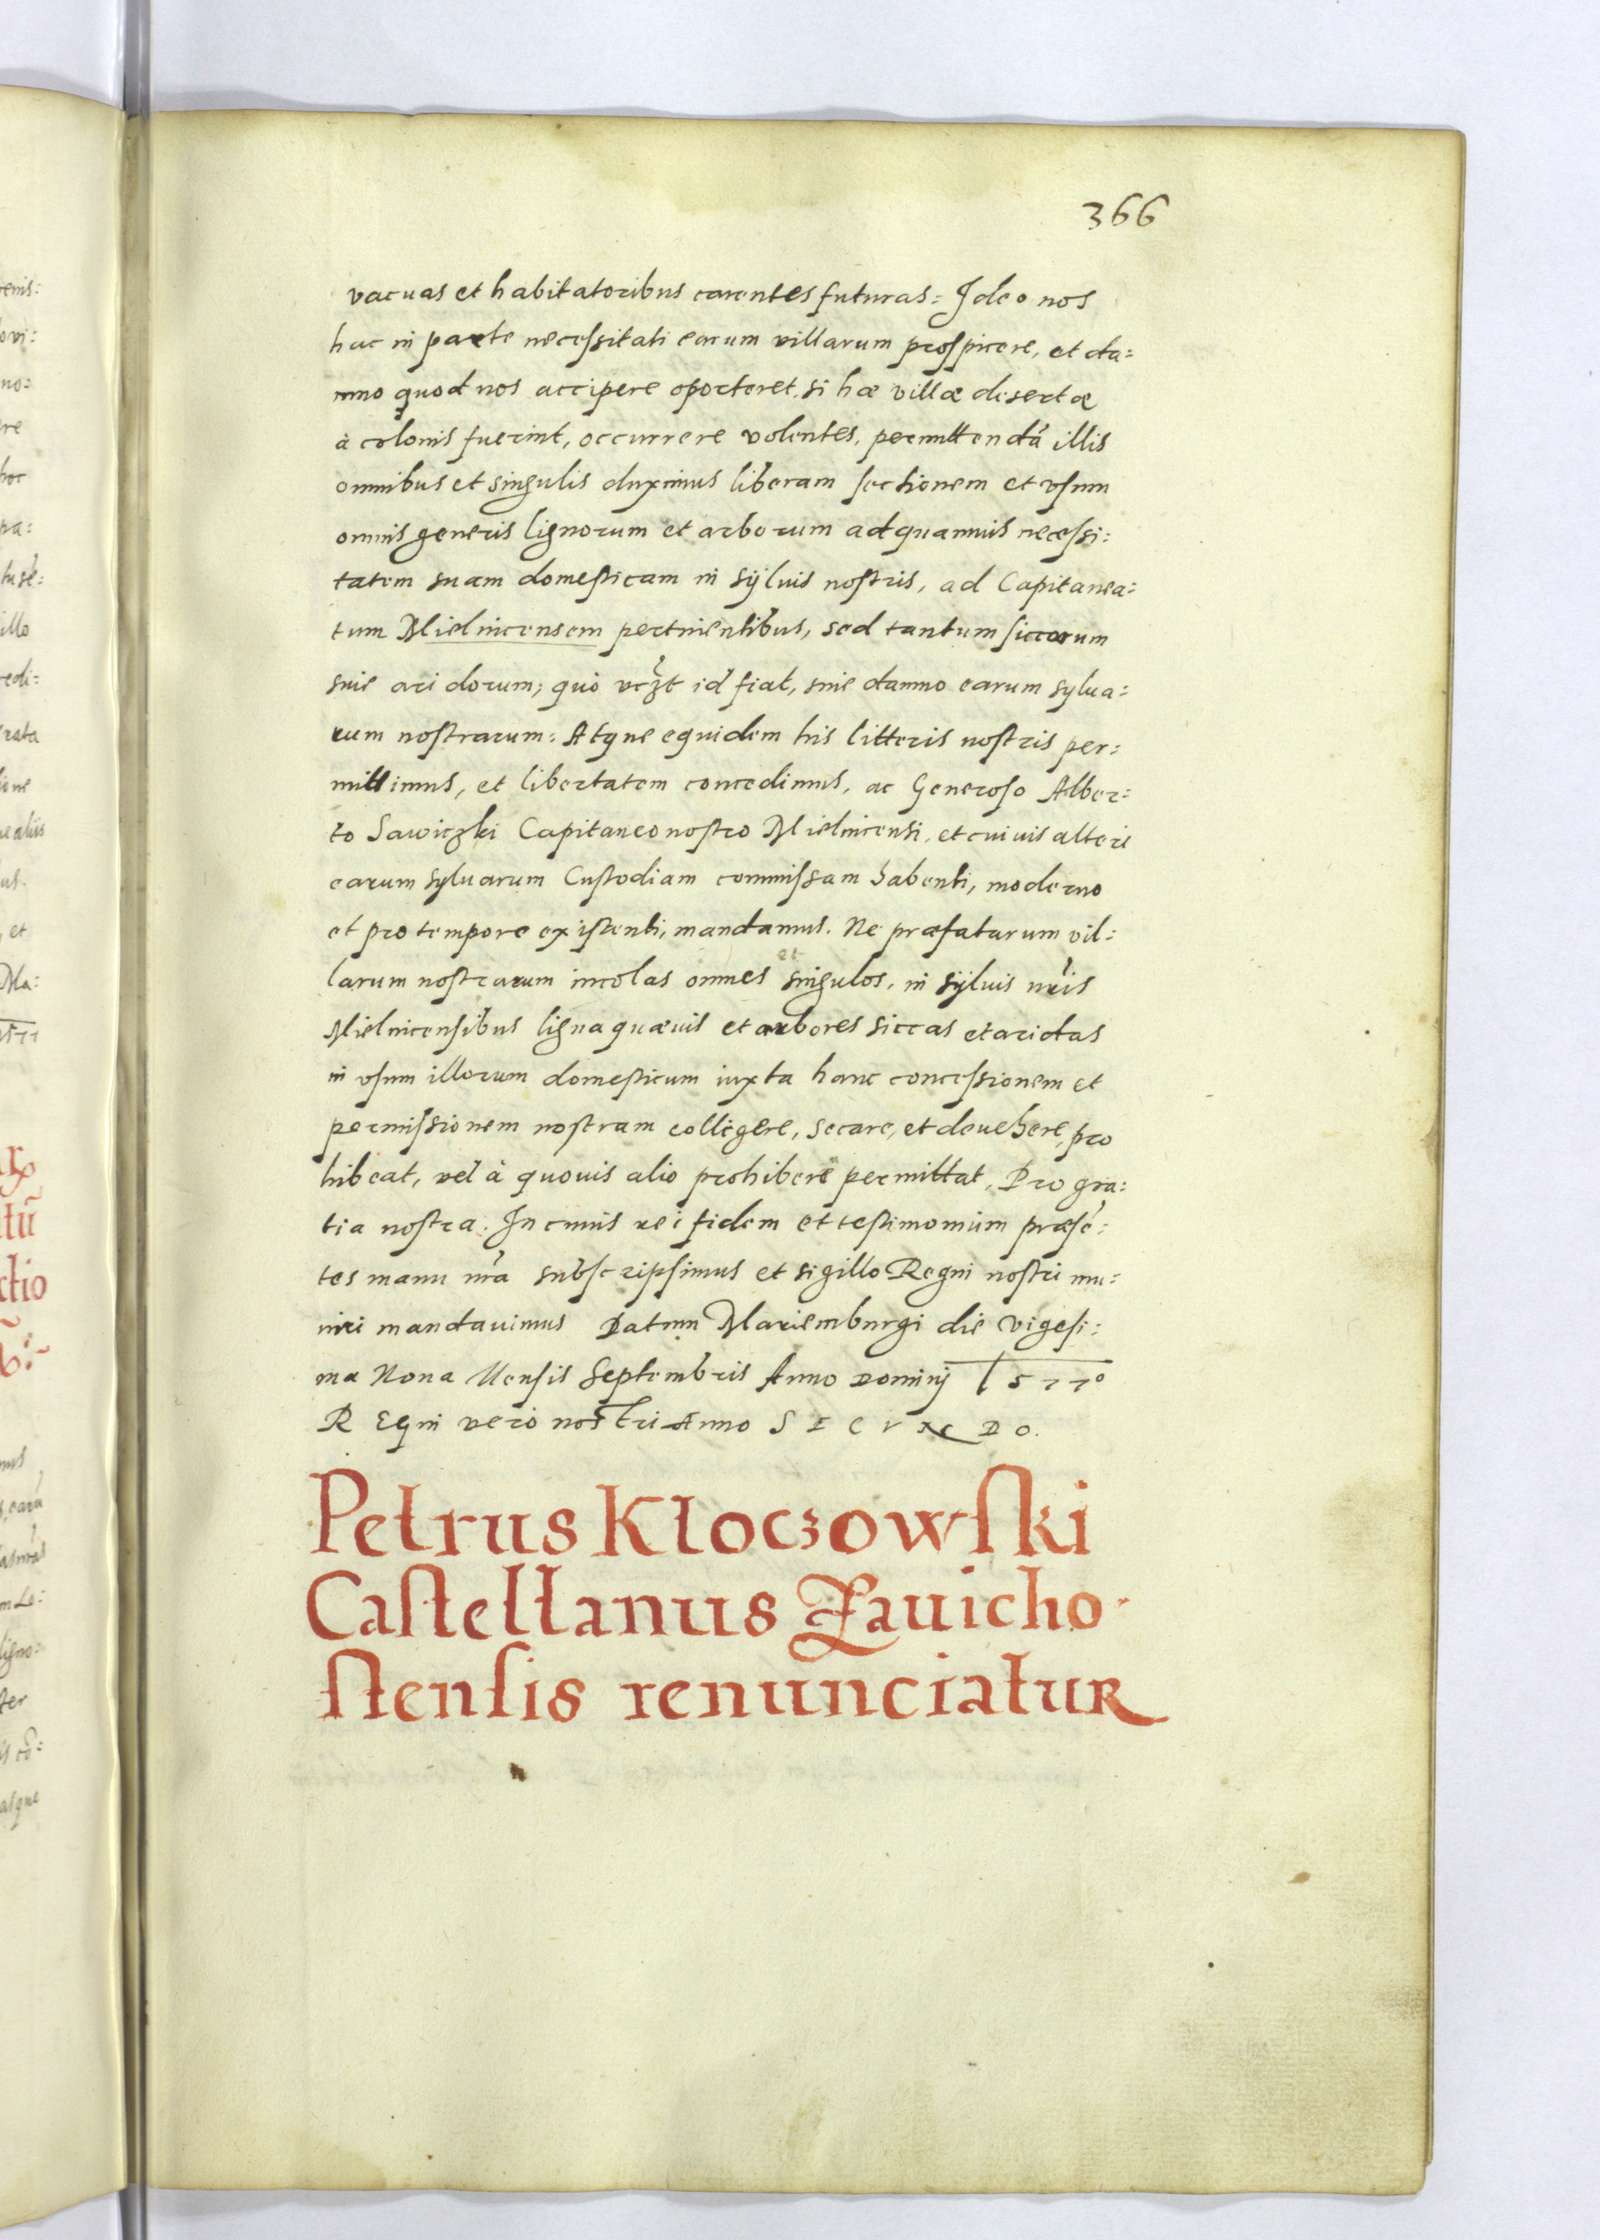 366
vacuas et habitatoribus carentes futuras: Ideo nos
hac in parte necessitati earum villarum prospicere, et da:
mno quod nos accipere oporteret, si hæ villæ desertæ
à colonis fuerint, occurrere volentes, permittendā illis
omnibus et singulis duximus liberam sectionem et vsum
omnis generis lignorum et arborum ad quamuis necessi:
tatem suam domesticam in sÿluis nostris, ad Capitanea:
tum Mielnicensem pertinentibus, sed tantum siccorum
siue aridorum; quò id fiat, sine damno earum sylua:
rum nostrarum: Atque equidem his litteris nostris per:
mittimus, et libertatem concedimus, ac Generoso Alber:
to Sawiczki Capitaneo nostro Mielnicensi, et cuiuis alteri
earum syluarum Custodiam commissam habenti, moderno
et pro tempore existenti, mandamus. Ne præfatarum vil:
larum nostrarum incolas omnes et singulos, in sÿluis nr̃is
Mielnicensibus ligna quæuis et arbores siccas et aridas
in vsum illorum domesticum iuxta hanc concessionem et
permissionem nostram colligere, secare, et deuehere, pro
hibeat, vel à quouis alio prohiberi permittat, Pro gra:
tia nostra. In cuius rei fidem et testimonium præsē:
tes manu nr̃a subscripsimus et sigillo Regni nostri mu:
niri mandauimus Datum Mariemburgi die vigesi:
ma Nona Mensis Septembris Anno Dominij 1577º
REgni vero nostri Anno SECVNDO.
Petrus Kłoczowski
Castellanus Zauicho-
stensis renunciatur